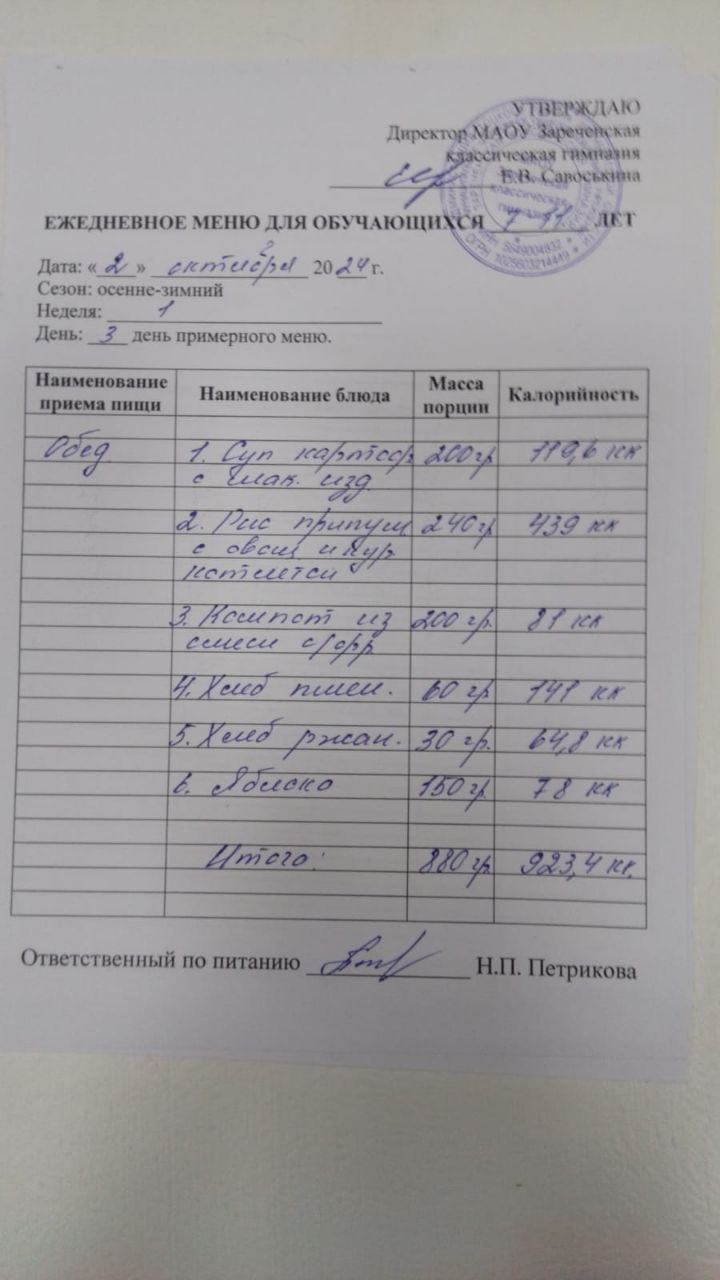 УТВЕРЖДАЮ
Директор МАОУ Зареченская
классическая гимназия
Е.В. Савоськина
ЕЖЕДНЕВНОЕ МЕНЮ ДЛЯ ОБУЧАЮЩИХСЯ 7-11 ЛЕТ
Дата: « 2 » октября 20 24 г.
Сезон: осенне-зимний
Неделя: 1
День: 3 день примерного меню.
Наименование приема пищи Наименование блюда Масса порции Калорийность
Обед 1. Суп картоф 200 гр 119,6 кк
с мак. изд.
2. Рис припущ 240 гр 439 кк
с овощ и кур
котлетой
3. Компот из 200 гр. 81 кк
смеси с/фр
4. Хлеб пшен. 60 гр 141 кк
5. Хлеб ржан. 30 гр. 64,8 кк
6. Яблоко 150 гр 78 кк
Итого: 880 гр. 923,4 кк.
Ответственный по питанию Н.П. Петрикова
ИНН 5649004832
ОГРН 1025603214449
классическая
гимназия